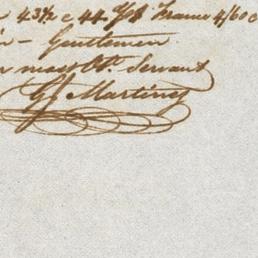 43½ c 44. Frame 4/60
– Gentlemen
most Obt. Servant
G Martinez